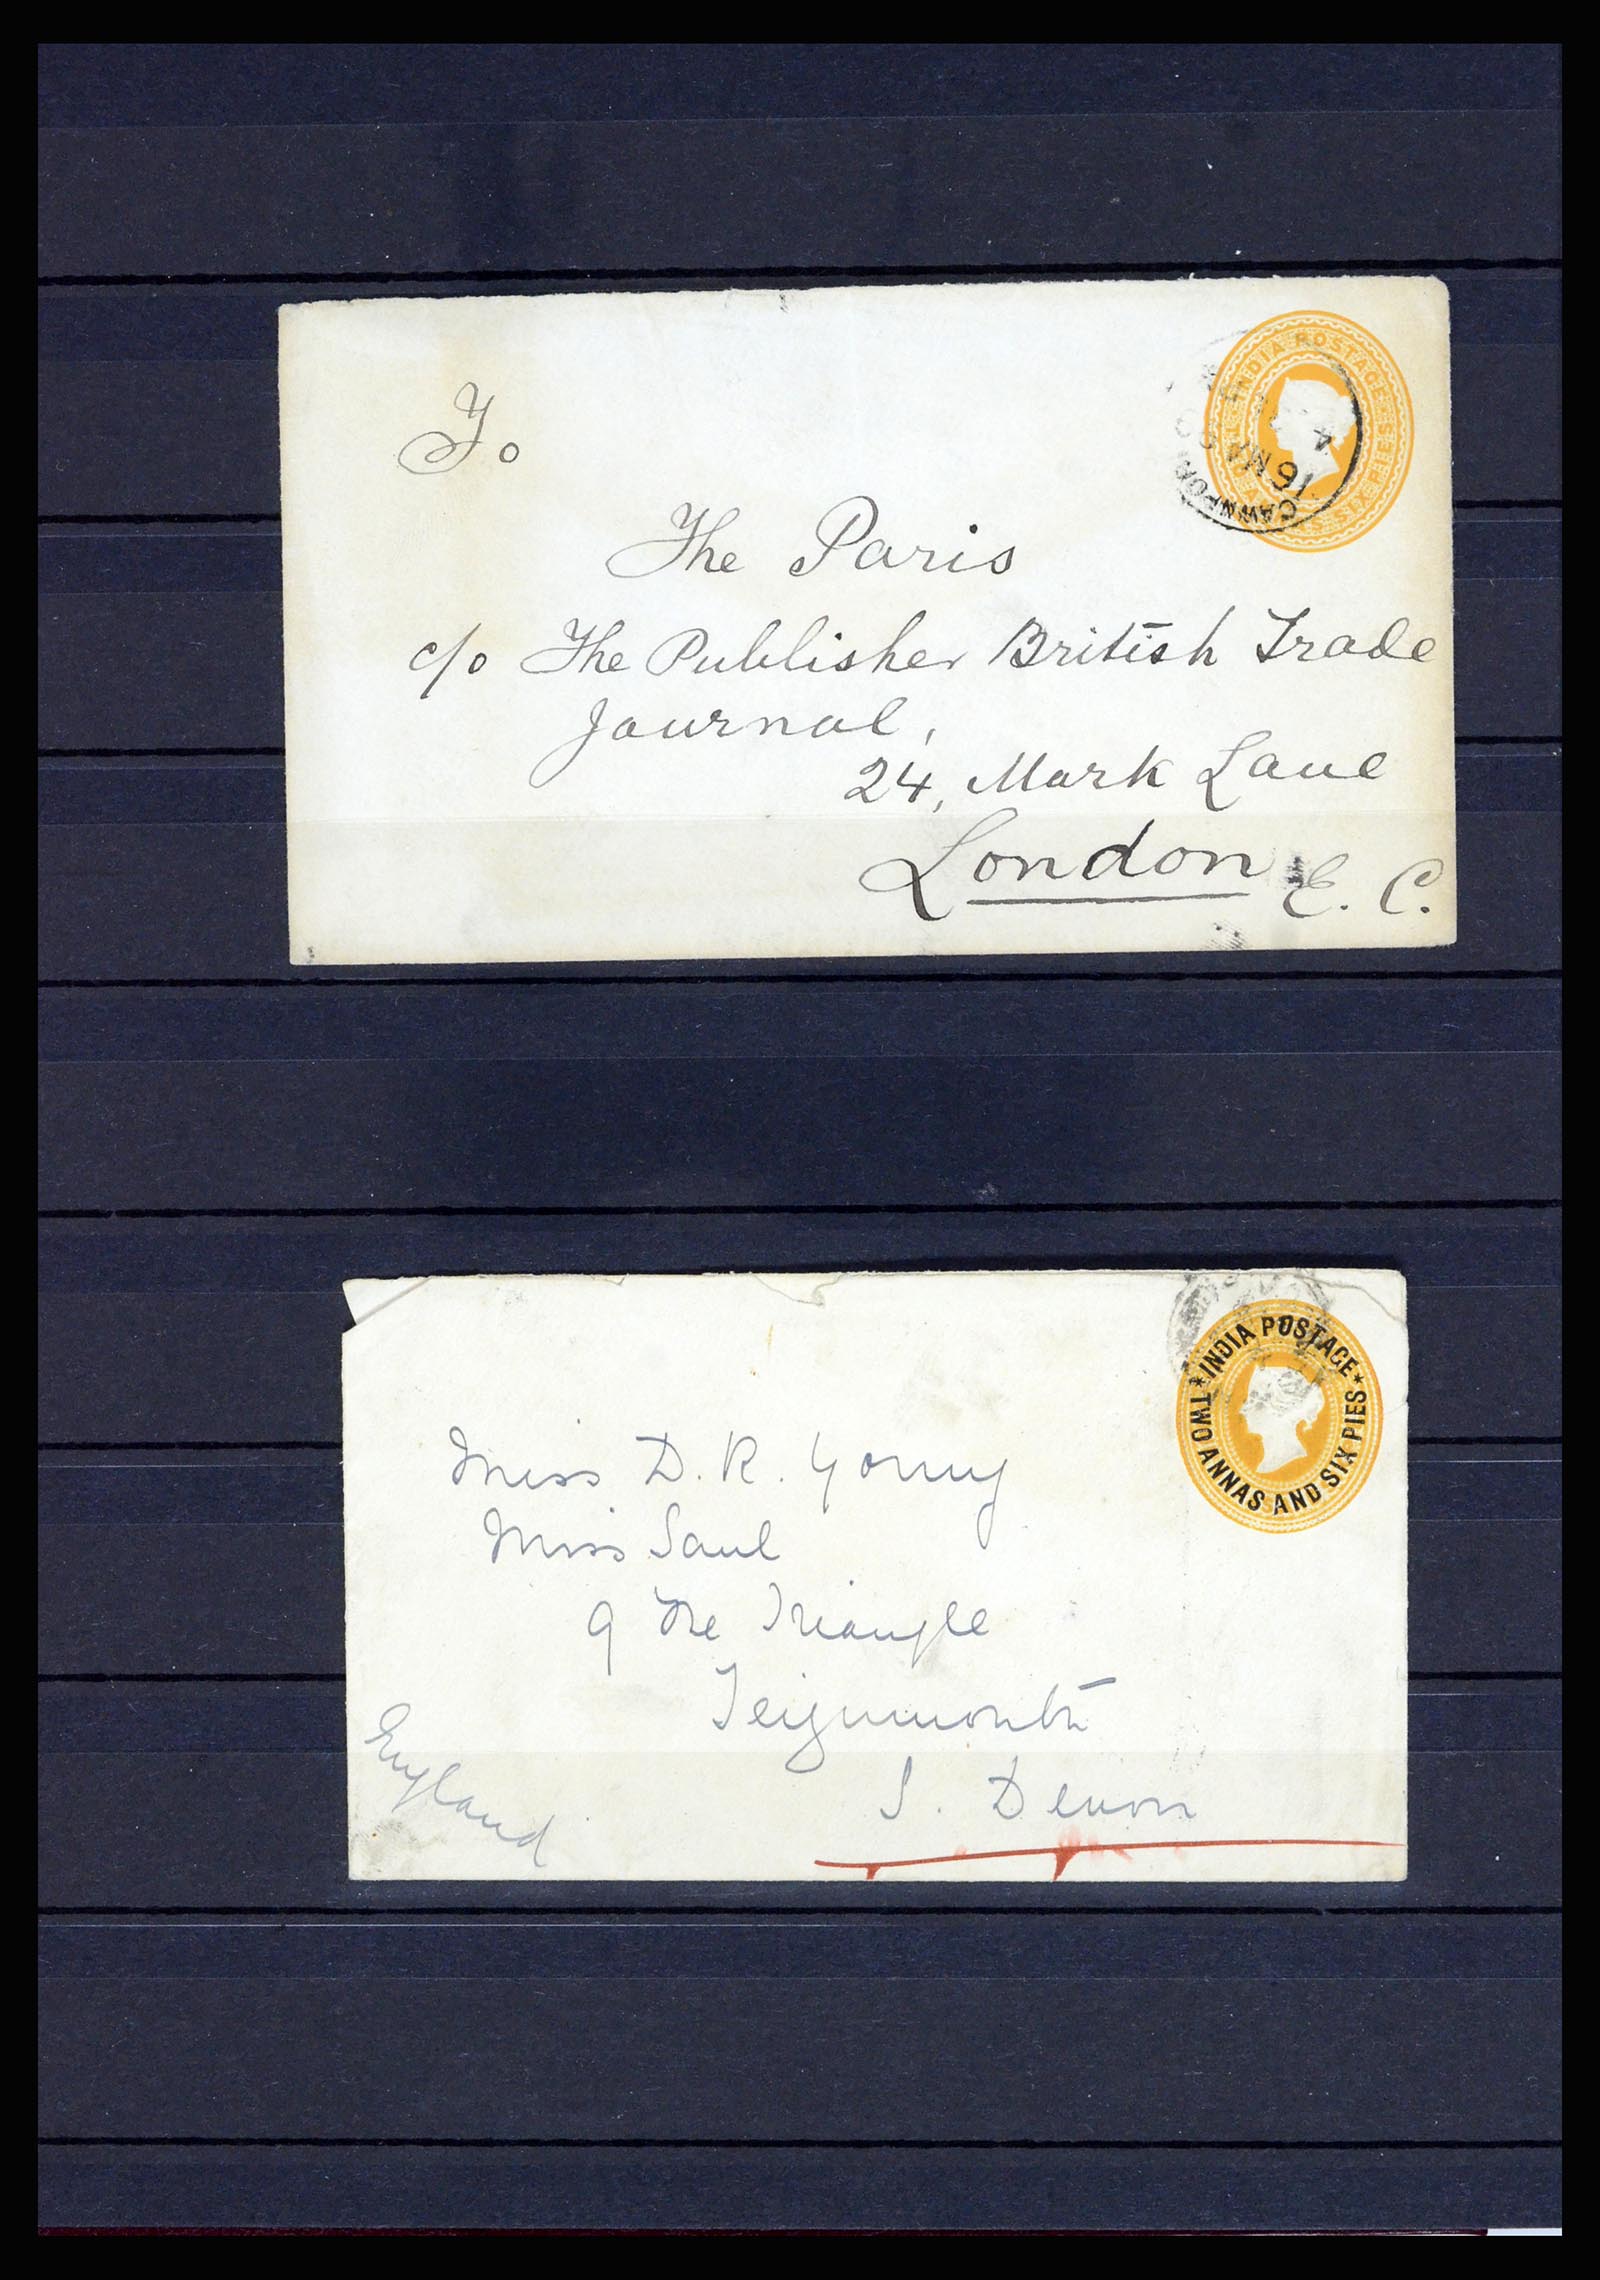 INDIA POSTAGE
CAWNPOR
16 MA
4
To
The Paris
c/o The Publisher British Trade
Journal,
24, Mark Lane
London E. C.
* INDIA POSTAGE *
TWO ANNAS AND SIX PIES
Miss D. R. Young
Miss Saul
9 The Triangle
Teignmouth
S. Devon
England